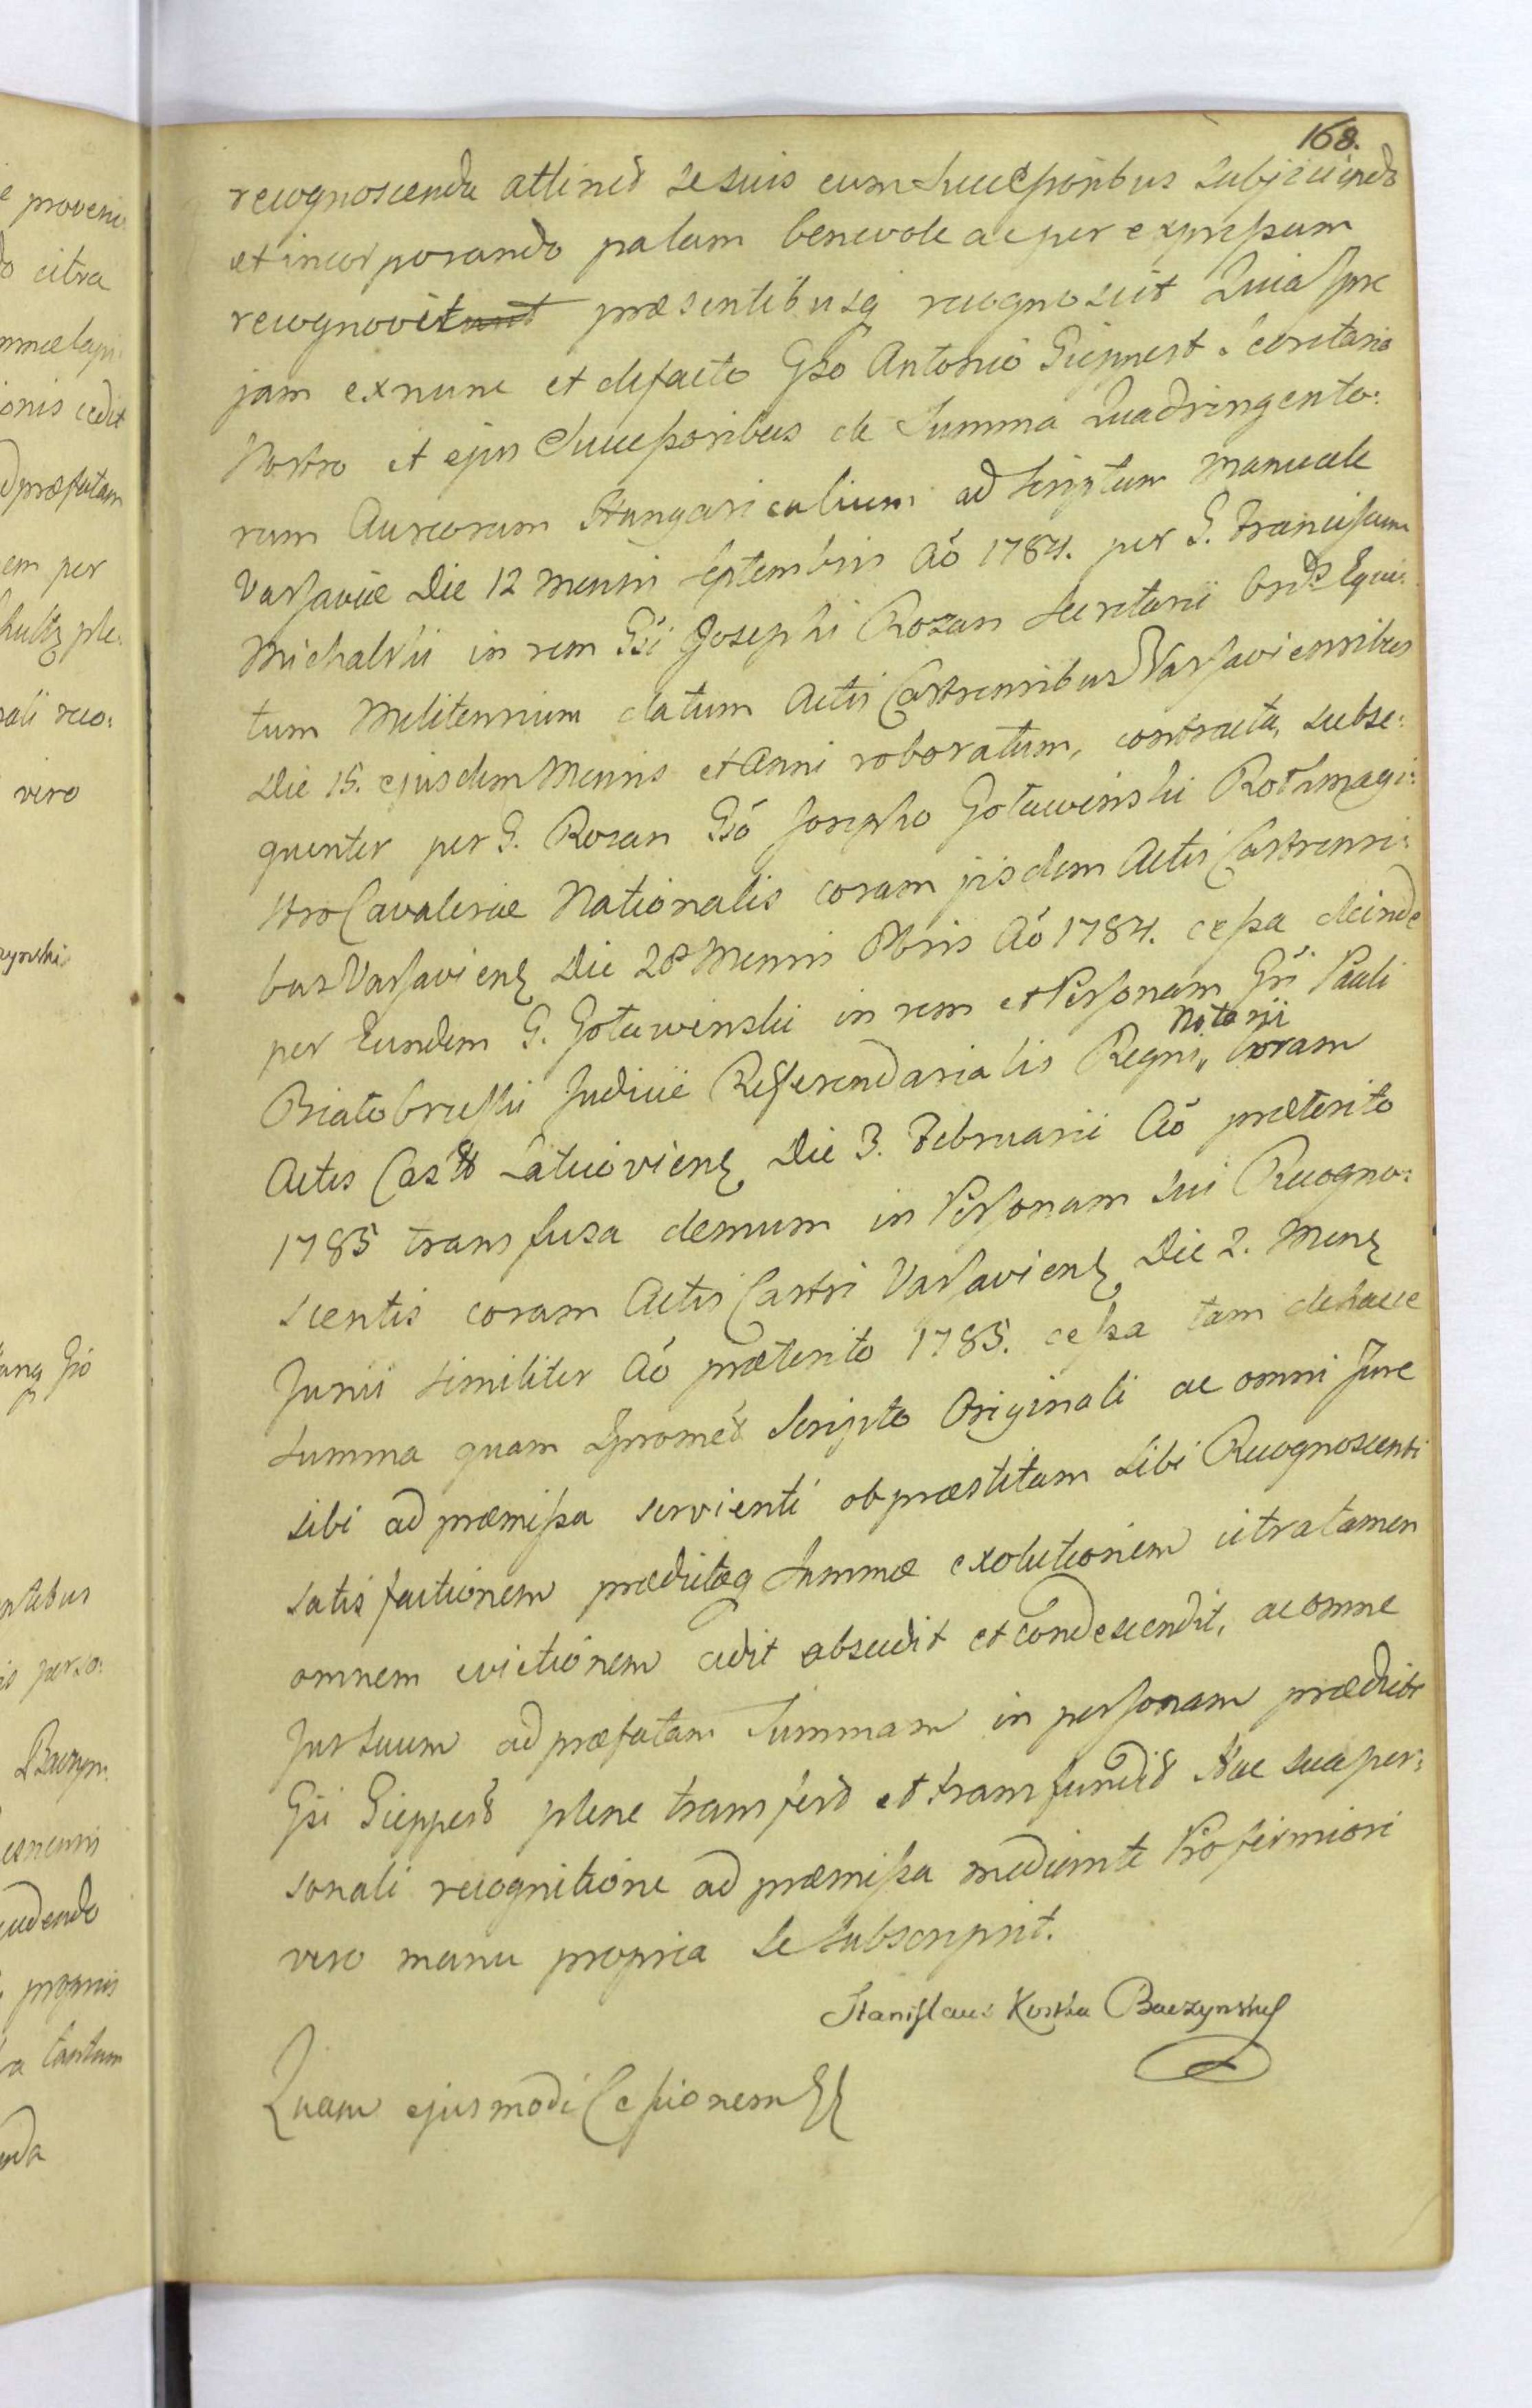 168.
recognoscenda attinet se suis cum Successoribus subjiciendo
et incorporando palam benevole ac per expressum
recognovit præsentibusq recognoscit Quia Ipse
jam exnunc et defacto Gso Antonio Gieppert Secretario
Nostro et ejus Successoribus de Summa Quadringento:
rum Aureorum Hungaricalium ad Scriptum Manuale
Varsaviæ Die 12 Mensis Septembris Aö 1784. per G. Franciscum
Michalski in rem Gsi Josephi Rozan Secretarii Ord Equi:
tum Melitensium datum Actis Castrensibus Varsaviensibus
Die 15. ejusdem Mensis et Anni roboratum, contracta, subse:
quenter per G. Rozan Gsö Josepho Gołuwinski Rothmagi:
stro Cavaleriæ Nationalis coram jisdem Actis Castrensi:
bus Varsavienq Die 28 Mensis 8bris Aö 1784. cessa deinde
per Eundem G. Gołuwinski in rem et Personam Gsi Pauli
Białobrzeski Judicii Referendarialis Regni,, Notarii coram
Actis Cas Latiovienq Die 3. Februarii Aö præterito
1785 transfusa demum in Personam sui Recogno:
scentis coram Actis Castri Varsavienq Die 2. Mensq
Junii similiter Aö præterito 1785. cessa tam dehacce
summa quam Scripto Originali ac omni Jure
sibi ad præmissa servienti ob præstitam sibi Recognoscenti
satisfactionem prædictæq Summæ exolutionem citratamen
omnem evictionem cedit abscedit et condescendit, ac omne
Jus suum ad præfatam Summam in personam prædicti
Gsi Gieppert plene transfert et transfundit Hac sua per:
sonali recognitione ad præmissa mediante Pro firmiori
vero manu propria se subscripsit.
Stanislaus Kostka Baczynski
Quam ejusmodi Cessionem